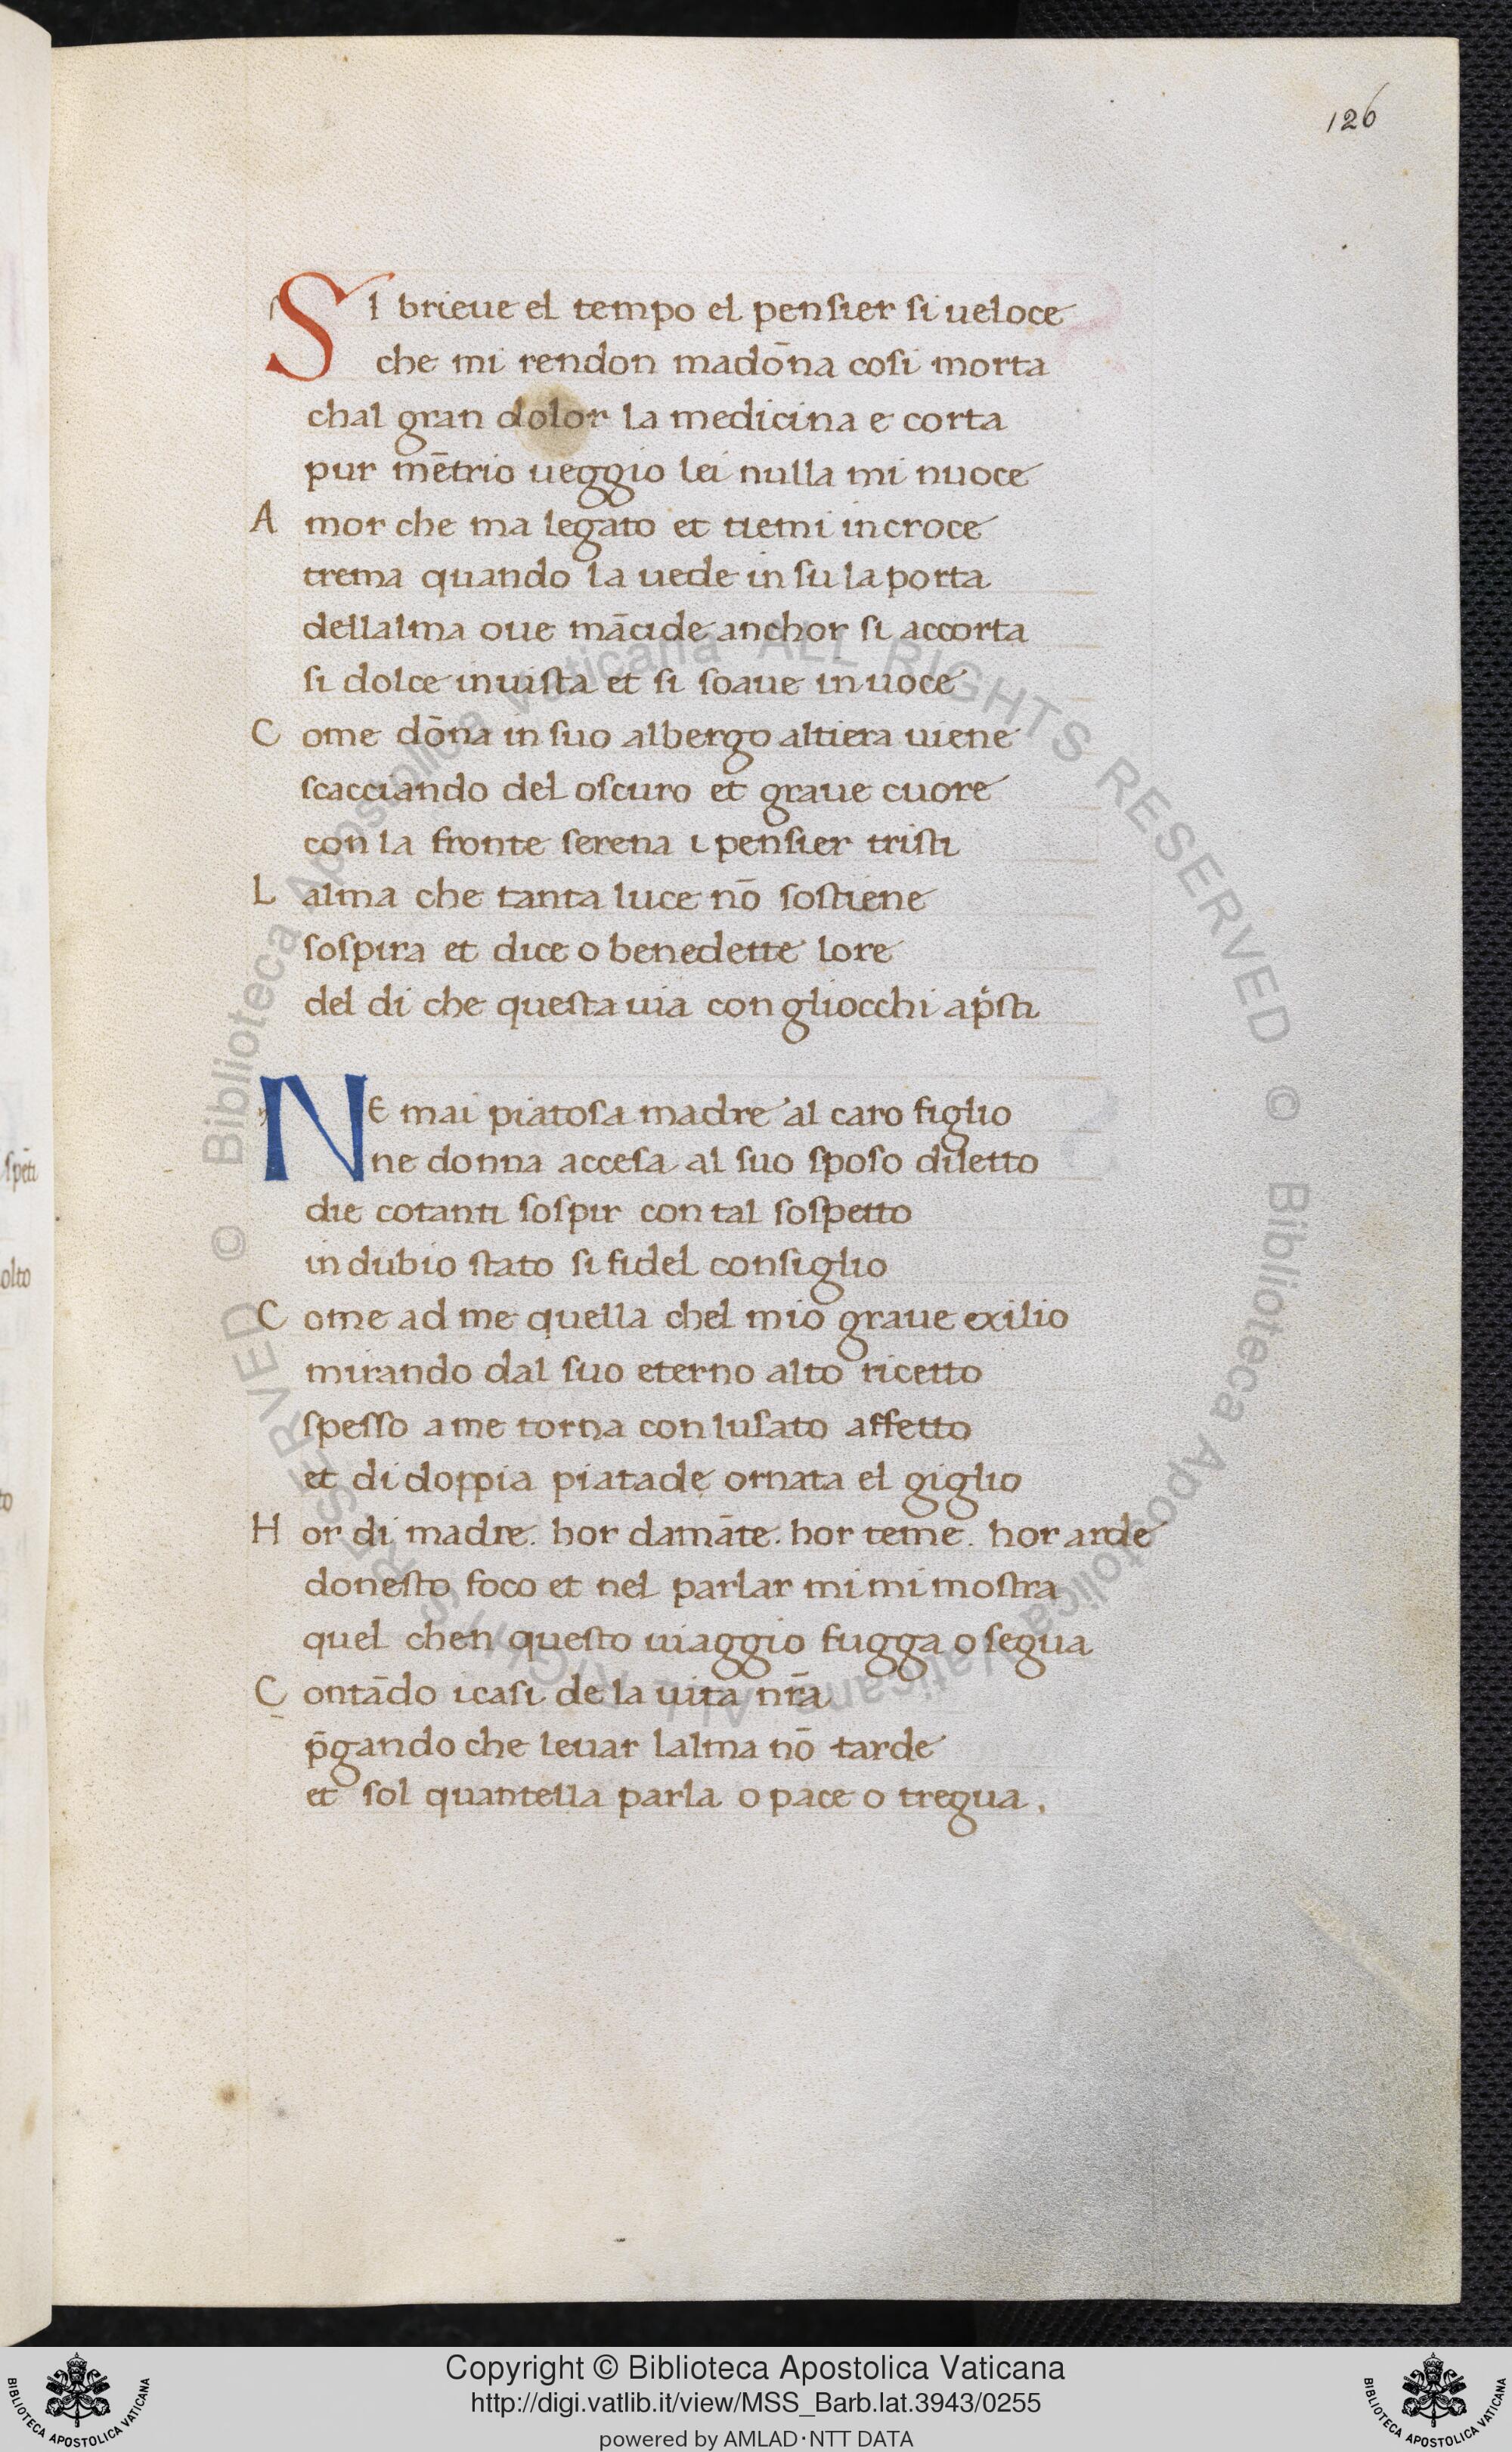 126
SI brieue el tempo el penſier ſi ueloce
che mi rendon madōna coſi morta
chal gran dolor la medicina e corta
pur mētrio ueggio lei nulla mi nuoce
A mor che ma legato et tiemi in croce
trema quando la uede in ſu la porta
dellalma oue mācide anchor ſi accorta
ſi dolce in uiſta et ſi ſoaue in uoce
C ome dōna in ſuo albergo altiera uiene
ſcacciando del oſcuro et graue cuore
con la fronte ſerena i penſier triſti
L alma che tanta luce nō ſoſtiene
ſoſpira et dice o benedette lore
del di che queſta uia con gliocchi ap̓ſti
NE mai piatoſa madre al caro figlio
ne donna acceſa al ſuo ſpoſo diletto
die cotanti ſoſpir con tal ſoſpetto
in dubio ſtato ſi fidel conſiglio
C ome ad me quella chel mio graue exilio
mirando dal ſuo eterno alto ricetto
ſpeſſo a me torna con luſato affetto
et di doppia piatade ornata el giglio
H or di madre. hor damāte. hor teme. hor arde
doneſto foco et nel parlar mi mi moſtra
quel chen queſto uiaggio fugga o ſegua
C ontādo i caſi de la uita nr̄a
p̄gando che leuar lalma nō tarde
et ſol quantella parla o pace o tregua.
ſpēti
olto
to
© Biblioteca Apostolica Vaticana ALL RIGHTS RESERVED © Biblioteca Apostolica Vaticana ALL RIGHTS RESERVED
Copyright © Biblioteca Apostolica Vaticana
http://digi.vatlib.it/view/MSS_Barb.lat.3943/0255
powered by AMLAD·NTT DATA
BIBLIOTECA APOSTOLICA VATICANA
BIBLIOTECA APOSTOLICA VATICANA